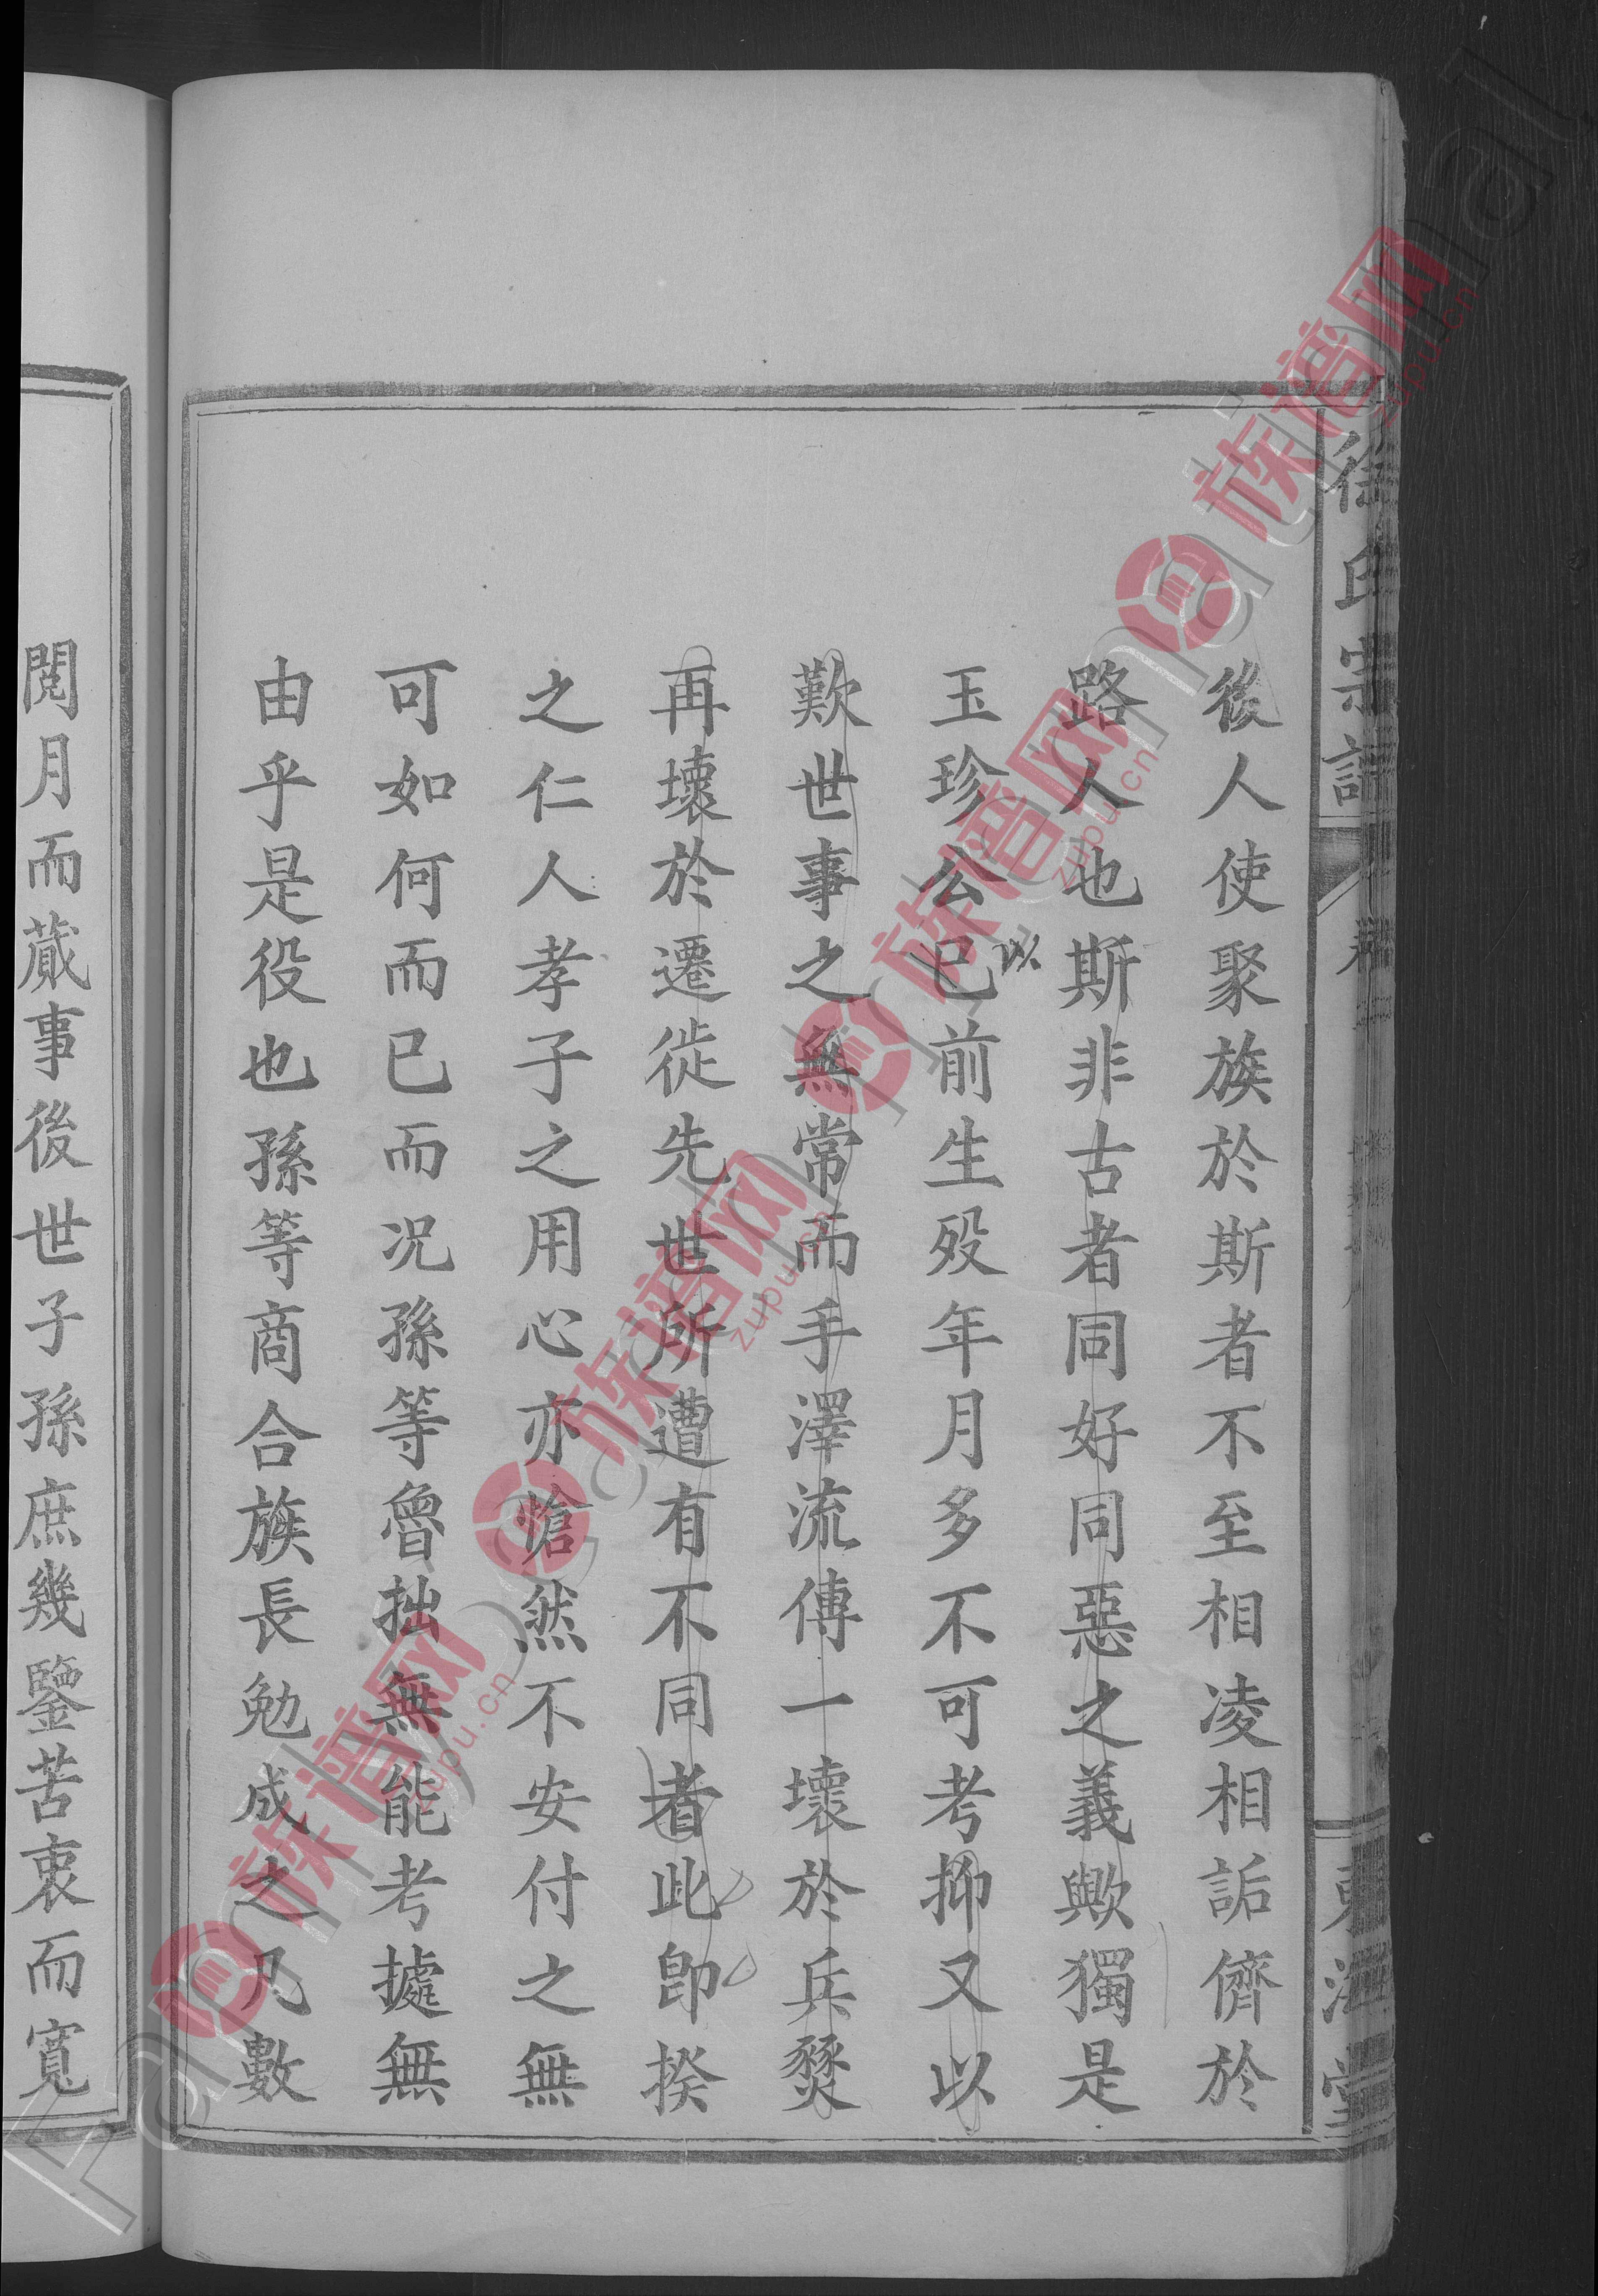 徐氏宗譜
東海堂
後人使聚族於斯者不至相凌相詬儕於
路人也斯非古者同好同惡之義歟獨是
玉珍公已前生歿年月多不可考抑又以
以
歎世事之無常而手澤流傳一壞於兵燹
再壞於遷徙先世所遭有不同者此卽揆
之仁人孝子之用心亦愴然不安付之無
可如何而已而况孫等魯拙無能考據無
由乎是役也孫等商合族長勉成之凡數
閱月而蕆事後世子孫庶幾鑒苦衷而寬
族譜网
zupu.cn
族譜网
zupu.cn
族譜网
zupu.cn
族譜网
zupu.cn